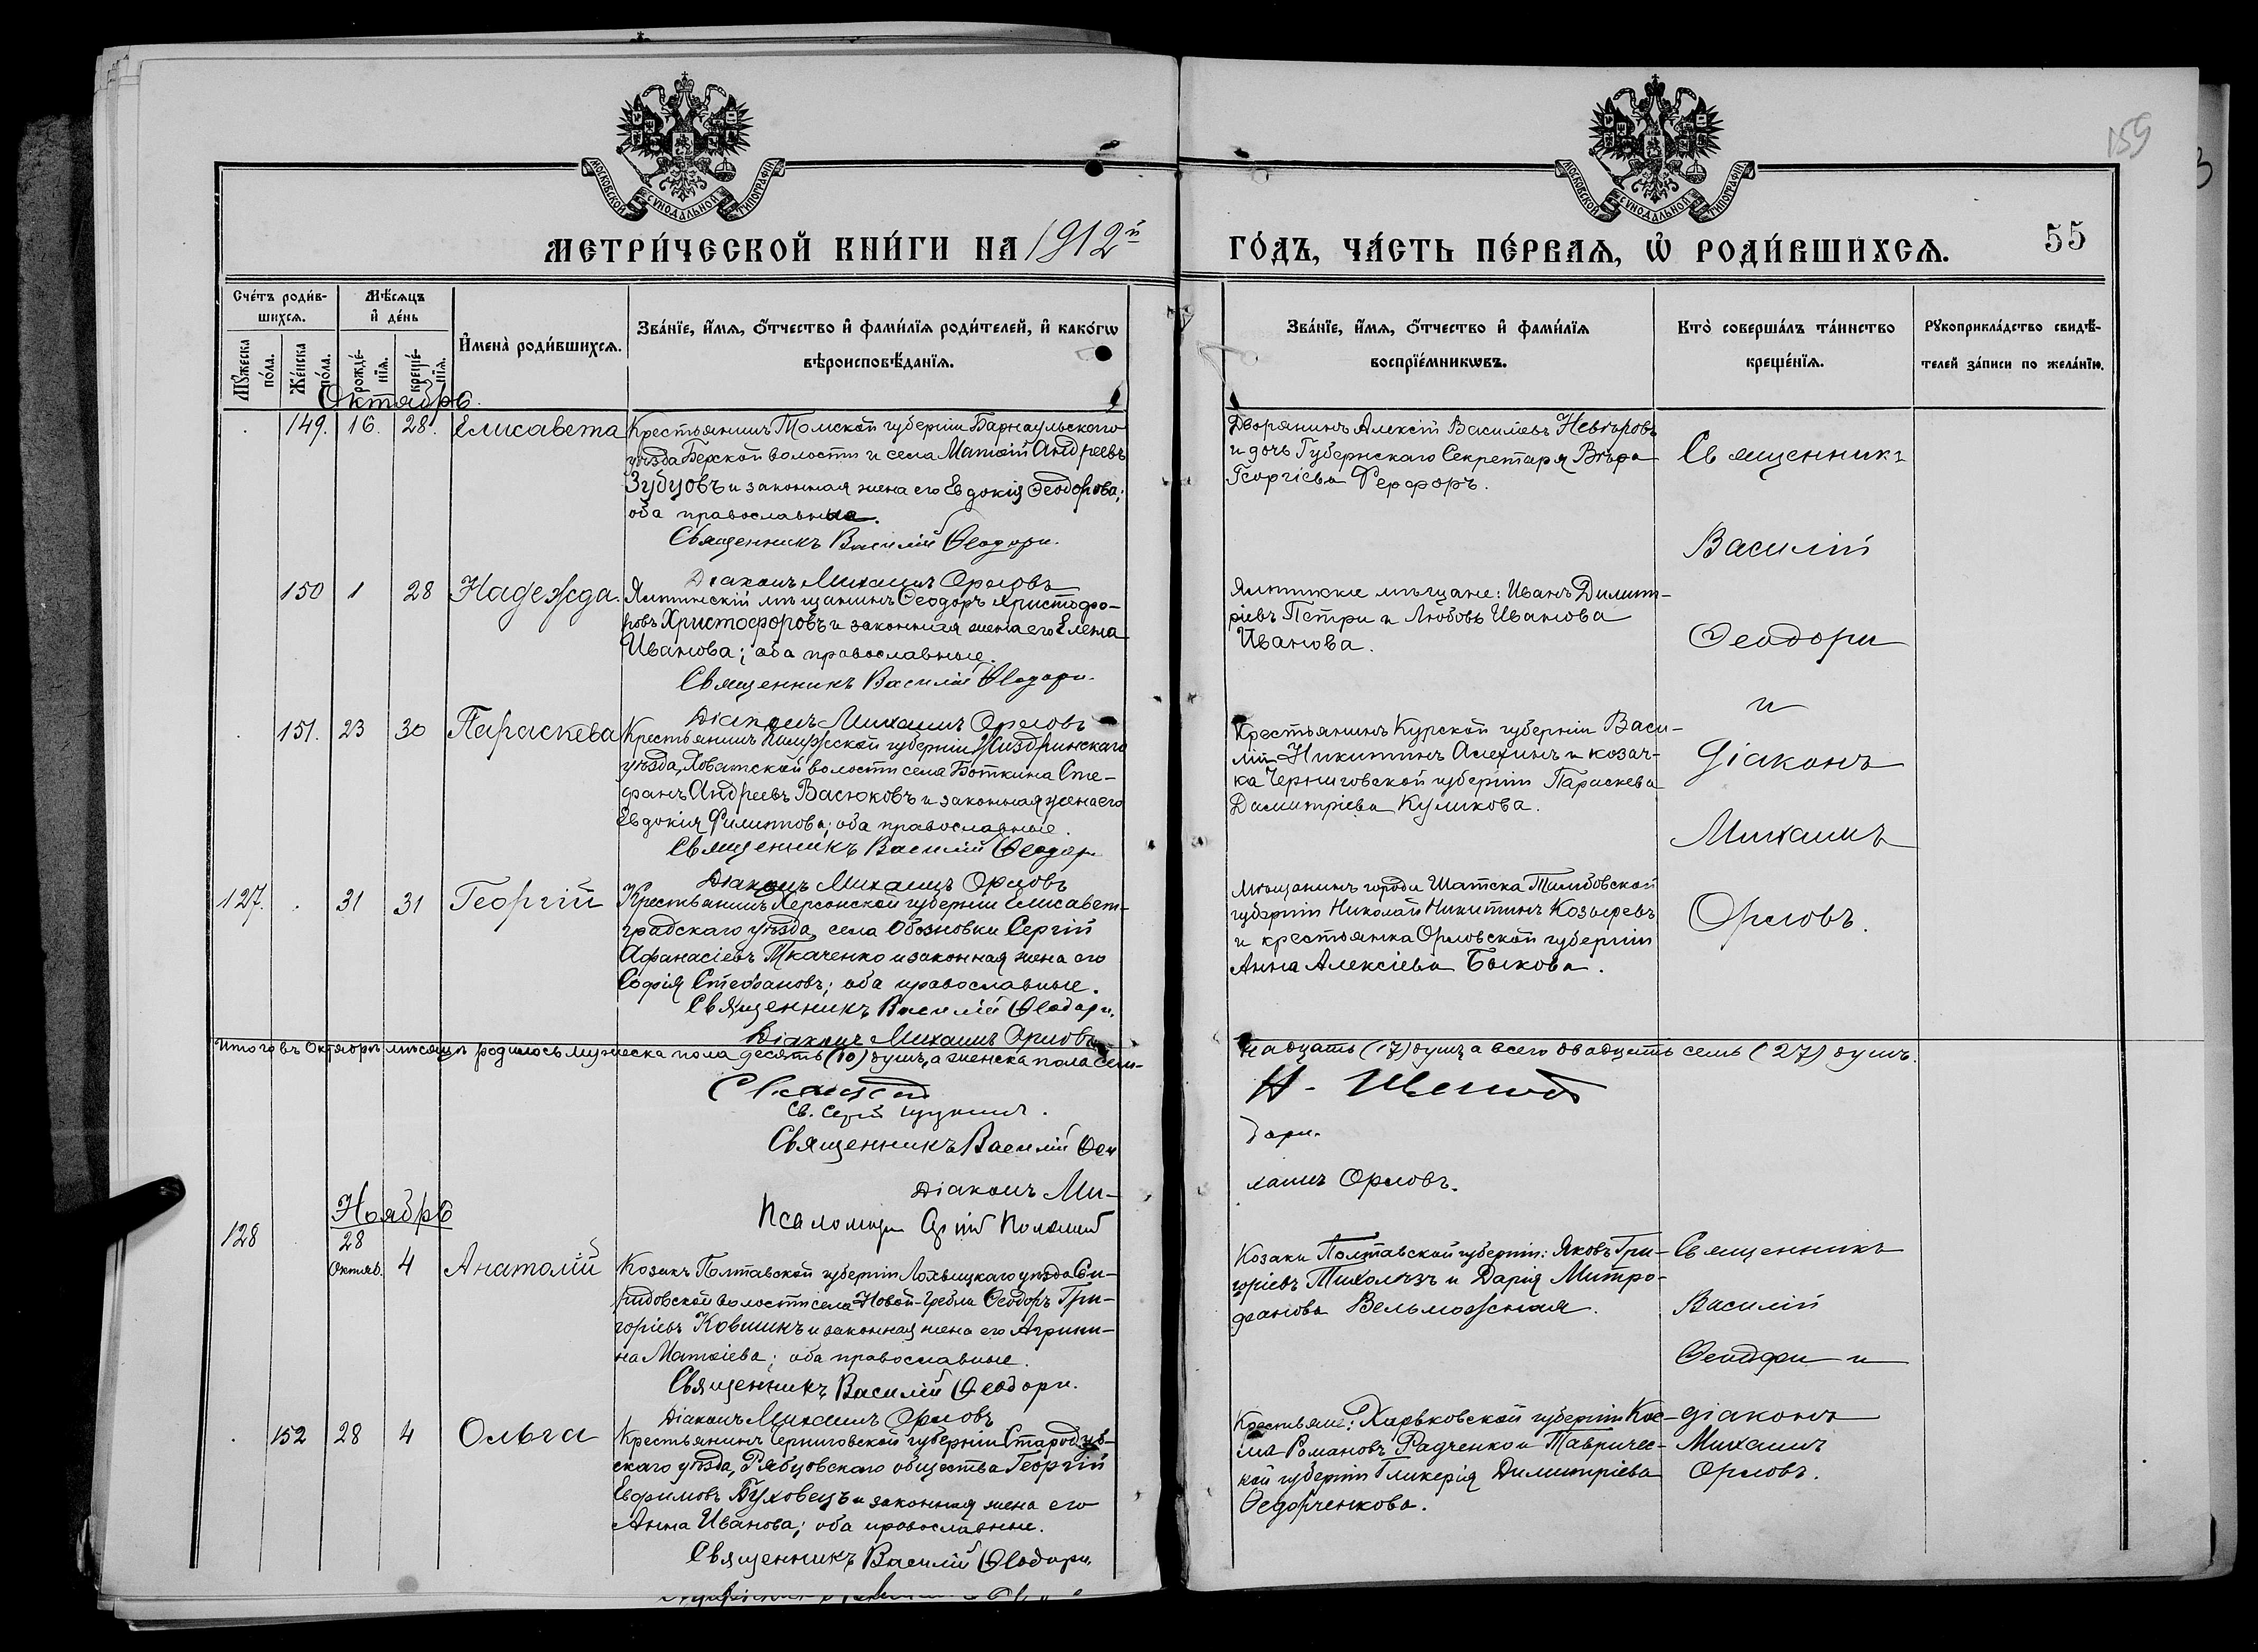 159
МОСКОВСКОЙ СУНОДАЛЬНОЙ ТИПОГРАФІИ.
МОСКОВСКОЙ СУНОДАЛЬНОЙ ТИПОГРАФІИ.
МЕТРИ́ЧЕСКОЙ КНИ́ГИ НА 1912й
ГО́ДЪ, ЧА́СТЬ ПЕ́РВАѦ, Ѡ҆ РОДИ́ВШИХСѦ.
55
Сче́тъ роди́в-
шихсѧ.
Мѣ́сѧцъ
и҆ де́нь
Мꙋ́жеска
по́ла.
Же́нска
по́ла.
рожде́-
нїѧ.
креще́-
нїѧ.
И҆мена̀ роди́вшихсѧ.
Зва́нїе, и҆́мѧ, ѻ҆́тчество и҆ фами́лїѧ роди́телей, и҆ како́гѡ
вѣроисповѣ́данїѧ.
Зва́нїе, и҆́мѧ, ѻ҆́тчество и҆ фами́лїѧ
воспрїе́мникѡвъ.
Кто̀ соверша́лъ та́инство
креще́нїѧ.
Рꙋкоприкла́дство свидѣ́-
телей за́писи по жела́нїю.
Октябрь.
149. 16. 28. Елисавета
Крестьянинъ Томской губерніи Барнаульскаго
уѣзда Берской волости и села Матѳій Андреевъ
Зубцовъ и законная жена его Евдокія Ѳеодорова;
оба православные.
Священникъ Василій Ѳеодори.
Діаконъ Михаилъ Орловъ
Дворянинъ Алексій Васильевъ Невзоровъ
и дочь Губернскаго Секретаря Вѣра
Георгіева Ферфоръ.
Священникъ
Василій
Ѳеодори
и
діаконъ
Михаилъ
Орловъ.
150 1 28 Надежда.
Ялтинскій мѣщанинъ Ѳеодоръ Христофо-
ровъ Христофоровъ и законная жена его Елена
Иванова; оба православные.
Священникъ Василій Ѳеодори.
Діаконъ Михаилъ Орловъ
Ялтинскіе мѣщане: Иванъ Димит-
ріевъ Петри и Любовь Иванова
Иванова.
151. 23 30 Параскева
Крестьянинъ Калужской губерніи Жиздринскаго
уѣзда, волости села Боткина Сте-
фанъ Андреевъ Васюковъ и законная жена его
Евдокія Филиппова; оба православные.
Священникъ Василій Ѳеодори
Діаконъ Михаилъ Орловъ
Крестьянинъ Курской губерніи Васи-
лій Никитинъ Алехинъ и козач-
ка Черниговской губерніи Параскева
Димитріева Куликова.
127. 31 31 Георгій
Крестьянинъ Херсонской губерніи Елисавет-
градскаго уѣзда, села Обозновки Сергій
Афанасіевъ Ткаченко и законная жена его
Софія Стефанова; оба православные.
Священникъ Василій Ѳеодори.
Діаконъ Михаилъ Орловъ
Мѣщанинъ города Шатска Тамбовской
губерніи Николай Никитинъ Козыревъ
и крестьянка Орловской губерніи
Анна Алексіева Быкова.
Итого въ Октябрѣ мѣсяцѣ родилось мужеска пола десять (10) душъ, а женска пола сем-
надцать (17) душъ, а всего двадцать семь (27) душъ.
Св. Сергій Щукинъ.
Священникъ Василій Ѳео
дори.
Діаконъ Ми-
хаилъ Орловъ.
Псаломщ
Ноябрь
128 28 Октяб. 4 Анатолій
Козакъ Полтавской губерніи Лохвицкаго уѣзда Си-
ридовской волости села Новой-Гребли Ѳеодоръ Гри-
горіевъ Ковшикъ и законная жена его Агрипи-
на Матѳіева; оба православные.
Священникъ Василій Ѳеодори.
Діаконъ Михаилъ Орловъ
Козаки Полтавской губерніи: Яковъ Гри-
горіевъ Тихолѣзъ и Дарія Митро-
фанова Вельможная.
Священникъ
Василій
Ѳеодори и
діаконъ
Михаилъ
Орловъ.
152 28 4 Ольга
Крестьянинъ Черниговской губерніи Стародуб-
скаго уѣзда, Рябцовскаго общества Георгій
Евфимовъ Буховецъ и законная жена его
Анна Иванова; оба православные.
Священникъ Василій Ѳеодори.
Крестьяне: Харьковской губерніи Кос-
ма Романовъ Радченко и Тавричес-
кой губерніи Гликерія Димитріева
Ѳедорченкова.